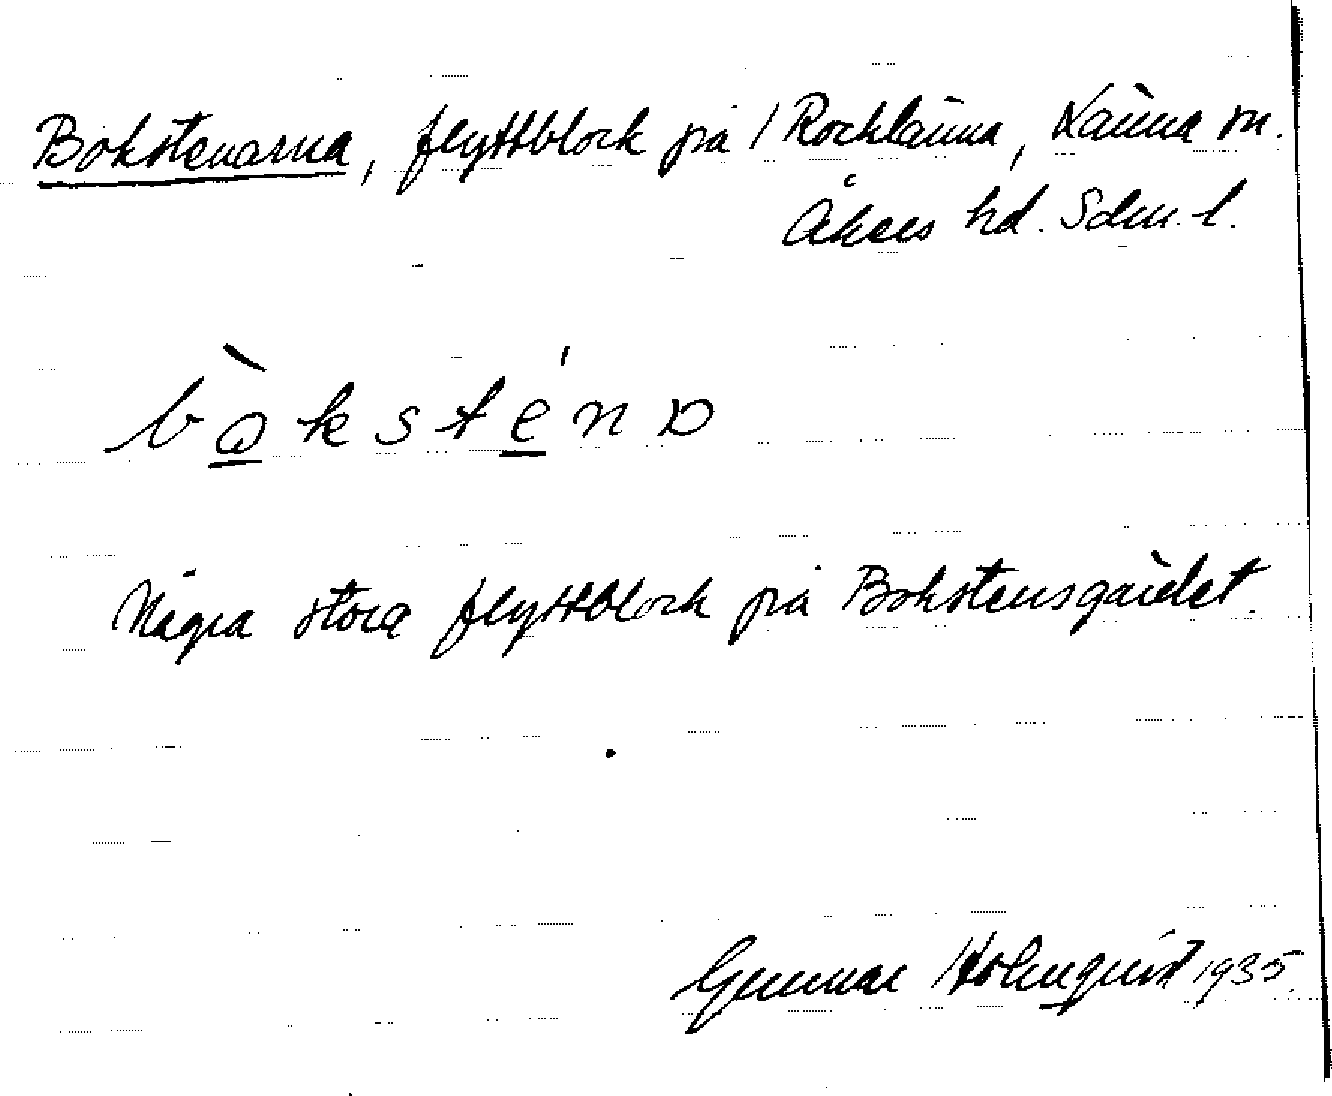 Bokstenarna, flyttblock på / Rocklänna, Länna sn.
Åkers hd. Sdm. l.
bòksténa
Några stora flyttblock på Bokstensgärdet.
Gunnar Holmquist 1935.